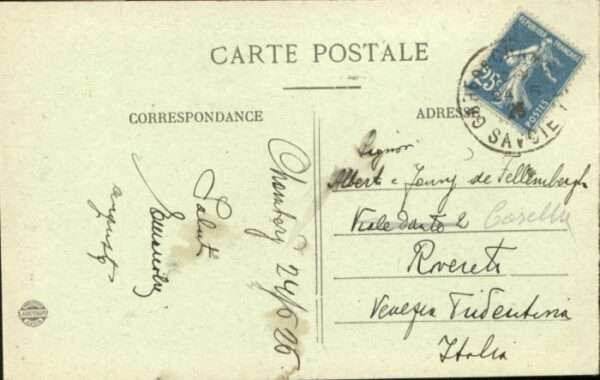 CARTE POSTALE
CORRESPONDANCE
ADRESSE
REPUBLIQUE FRANÇAISE
25c
POSTES
SAVOIE
Chambéry 24/6 26
Saluti
Signori
Alberto e Jenny de Fellenbergh
Viale Dante 2
Rovereto
Venezia Tridentina
Italia